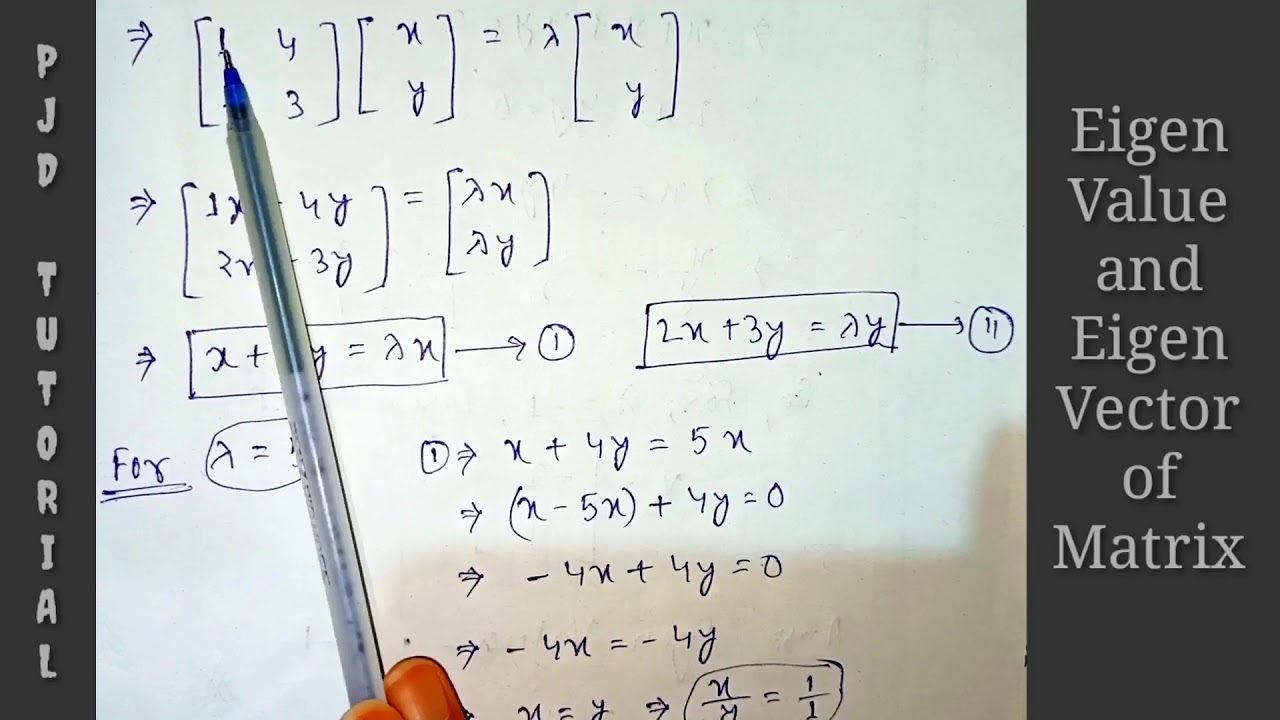 PJD TUTORIAL
⇒ [1 4; 3] [x; y] = λ [x; y]
⇒ [1x 4y; 2x 3y] = [λx; λy]
⇒ x + y = λx → ①
2x + 3y = λy → ⑪
For λ =
① ⇒ x + 4y = 5x
⇒ (x - 5x) + 4y = 0
⇒ - 4x + 4y = 0
⇒ - 4x = - 4y
x = y ⇒ x/y = 1/1
Eigen
Value
and
Eigen
Vector
of
Matrix